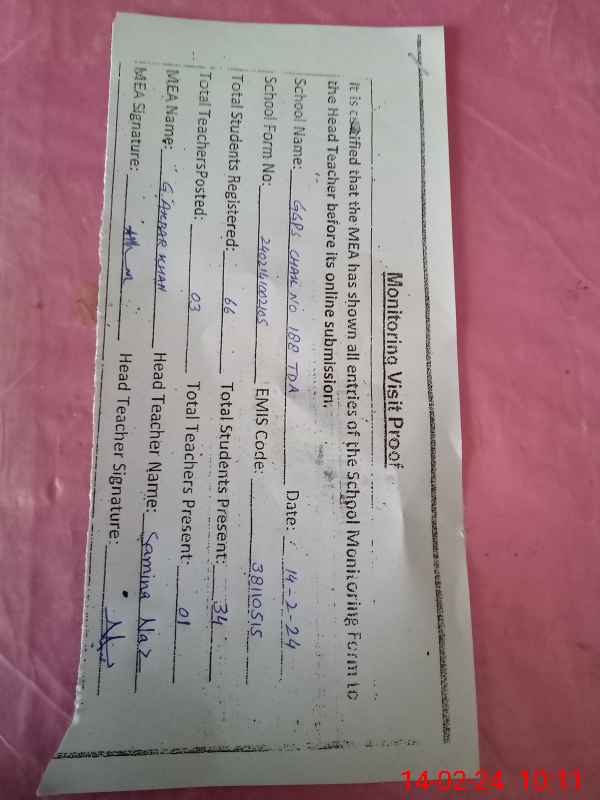 Monitoring Visit Proof
It is certified that the MEA has shown all entries of the School Monitoring Form to
the Head Teacher before its online submission.
School Name: GGPS CHAK NO 188 TDA Date: 14-2-24
School Form No: EMIS Code: 38110515
Total Students Registered: 66 Total Students Present: 34
Total Teachers Posted: 03 Total Teachers Present: 01
MEA Name: G. AKBAR KHAN Head Teacher Name: Samina Naz
MEA Signature: Head Teacher Signature:
14-02-24 10:11